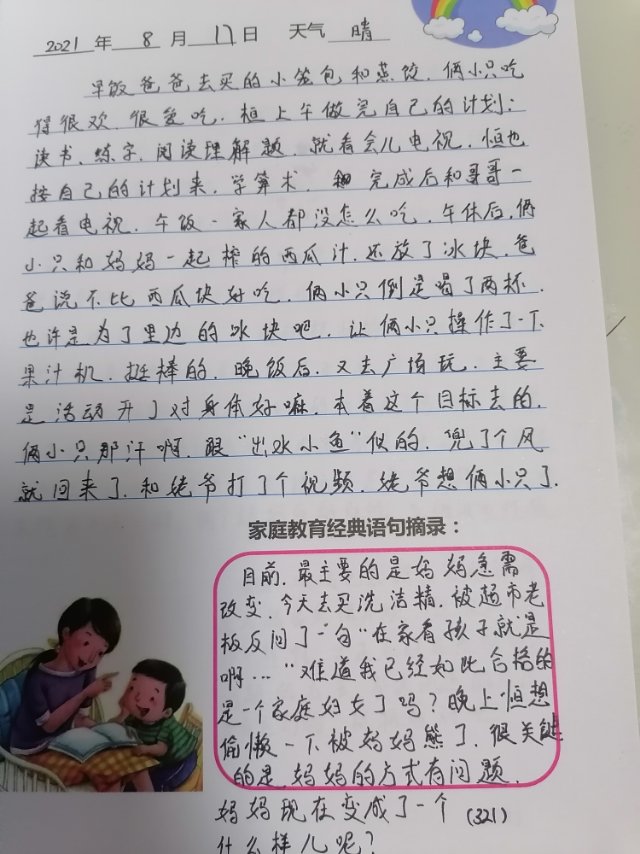 2021 年 8 月 17 日 天气 晴
早饭爸爸去买的小笼包和蒸饺，俩小只吃
得很欢，很爱吃，桓上午做完自己的计划：
读书、练字、阅读理解题，就看会儿电视，恒也
按自己的计划来，学算术，完成后和哥哥一
起看电视，午饭一家人都没怎么吃，午休后，俩
小只和妈妈一起榨的西瓜汁，还放了冰块，爸
爸说不比西瓜块好吃，俩小只倒是喝了两杯，
也许是为了里边的冰块吧，让俩小只操作了一下
果汁机，挺棒的，晚饭后，又去广场玩，主要
是活动开了对身体好嘛，本着这个目标去的，
俩小只那汗啊，跟“出水小鱼”似的，兜了个风
就回来了，和姥爷打了个视频，姥爷想俩小只了.
家庭教育经典语句摘录：
目前，最主要的是妈妈急需
改变，今天去买洗洁精，被超市老
板反问了一句“在家看孩子就是
啊...“难道我已经如此合格的
是一个家庭妇女了吗？晚上恒想
偷懒一下被妈妈熊了，很关键
的是妈妈的方式有问题，
妈妈现在变成了一个 (321)
什么样儿呢？